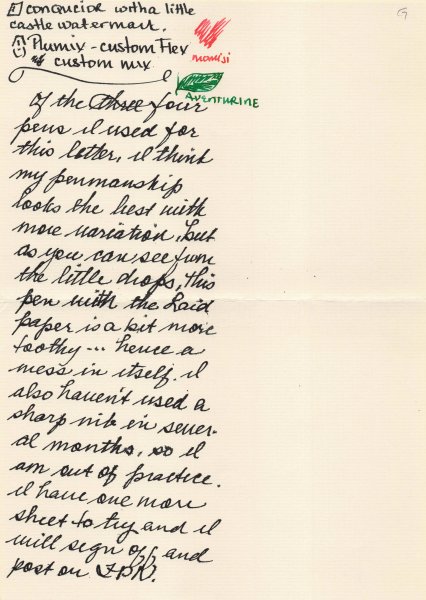 conqueror with a little
castle watermark.
Plumix - custom Flex
custom mix
momiji
AVENTURINE
Of the three four
pens I used for
this letter, I think
my penmanship
looks the best with
more variation, but
as you can see from
the little drops, this
pen with the Laid
paper is a bit more
toothy... hence a
mess in itself. I
also haven't used a
sharp nib in sever-
al months, so I
am out of practice.
I have one more
sheet to try and I
will sign off and
post on FPN.